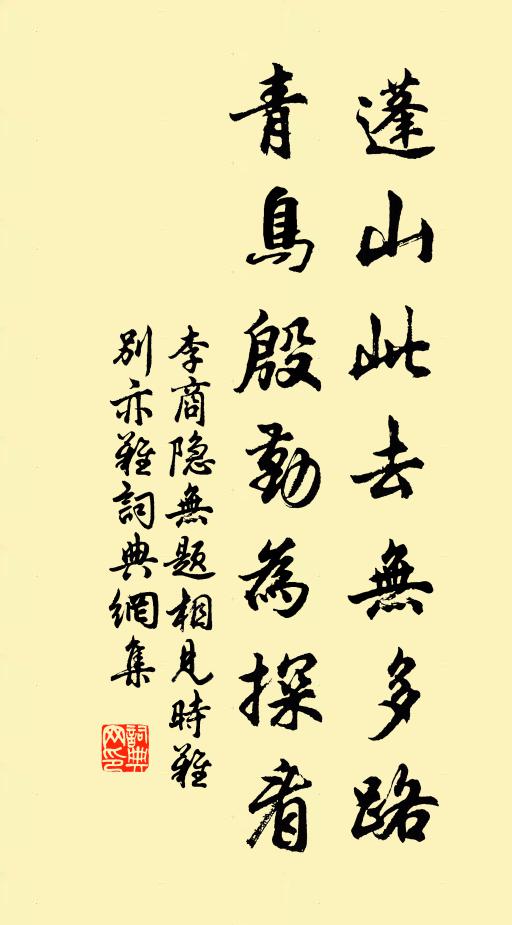 蓬山此去無多路
青鳥殷勤為探看
李商隐無题相見時難
别亦難詞典網集
詞典
网印